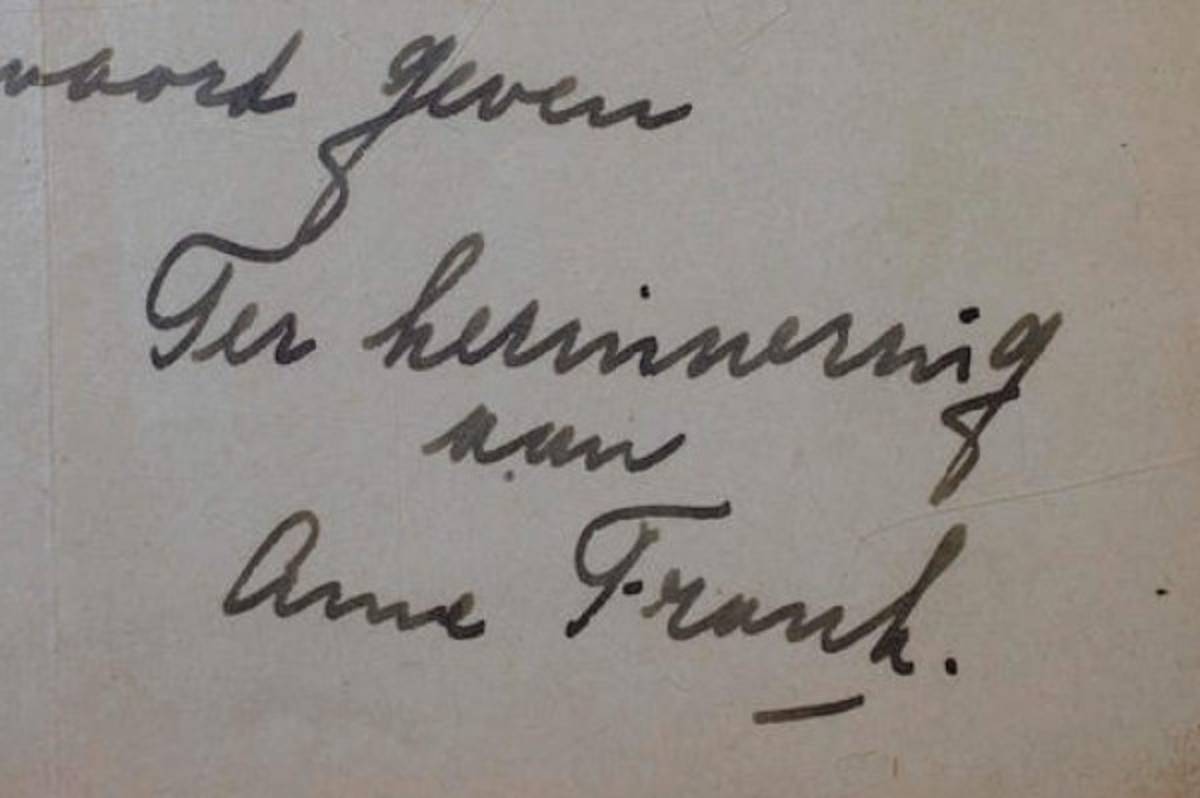 waord geven
Ter herinnering
aan
Anne Frank.